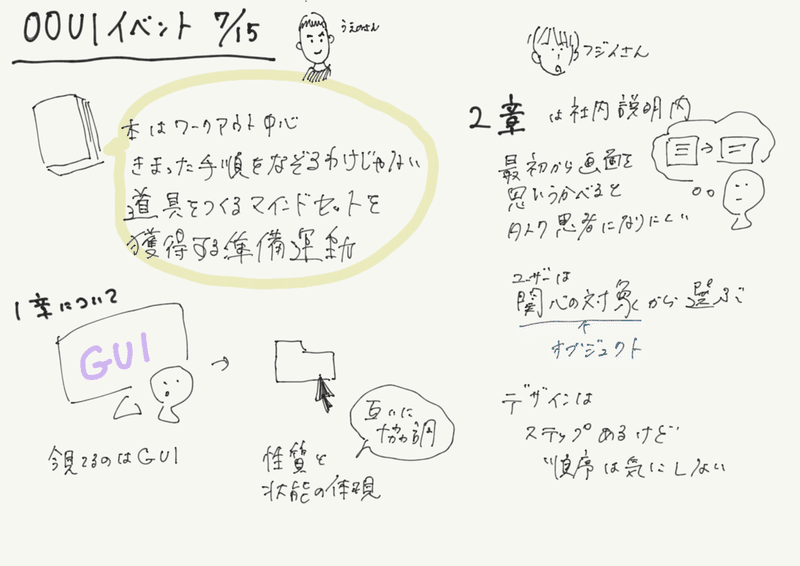 OOUIイベント 7/15
うえのさん
本はワークアウト中心
きまった手順をなぞるわけじゃない
道具をつくるマインドセットを
獲得する準備運動
1章について
GUI
今見てるのはGUI
互いに
協調
性質と
状態の体現
フジイさん
2章は社内説明内
最初から画面を
思いうかべると
タスク思考になりにくい
ユーザーは
関心の対象から選ぶ
オブジェクト
デザインは
ステップあるけど
順序は気にしない